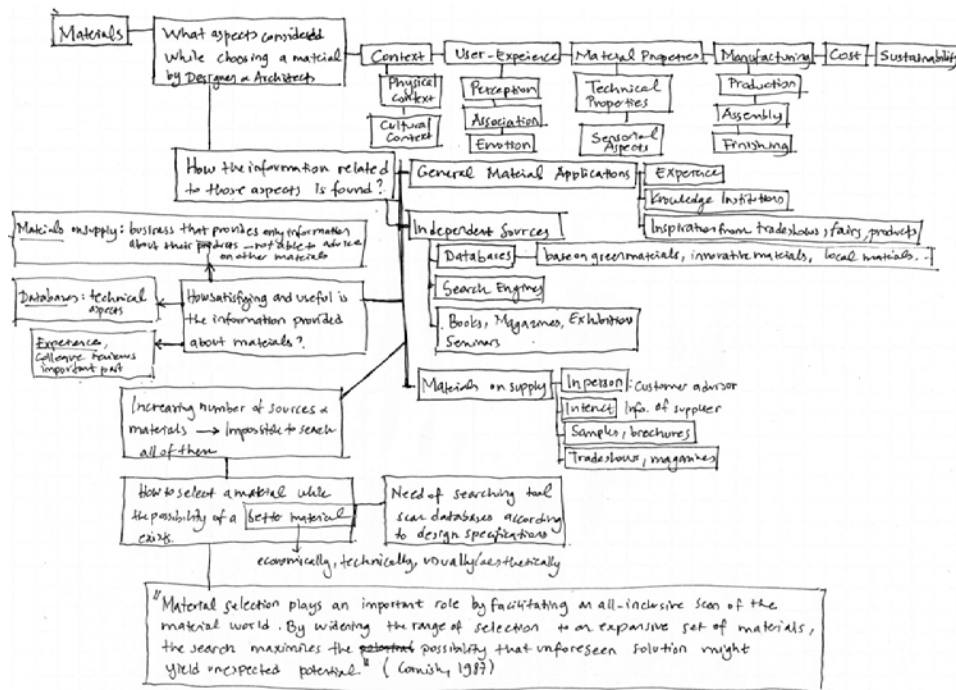 Materials
What aspects considered
while choosing a material
by Designer & Architects
Context
Physical
Context
Cultural
Context
User-Experience
Perception
Association
Emotion
Material Properties
Technical
Properties
Sensorial
Aspects
Manufacturing
Production
Assembly
Finishing
Cost
Sustainability
How the information related
to those aspects is found?
General Material Applications
Experence
Knowledge Institutions
Inspiration from tradeshows, fairs, products
Independent Sources
Databases
base on green materials, innovative materials, local materials...
Search Engines
Books, Magazines, Exhibitions
Seminars
Materials on supply
In person : Customer advisor
Internet Info. of supplier
Samples, brochures
Tradeshows, magazines
How satisfying and useful is
the information provided
about materials?
Materials on supply: business that provides only information
about their products — not able to advice
on other materials
Databases: technical
aspects
Experiences,
colleague reviews
important part
Increasing number of sources &
materials → Impossible to search
all of them
How to select a material while
the possibility of a better material
exists.
economically, technically, visually/aesthetically
Need of searching tool
scan databases according
to design specifications
"Material selection plays an important role by facilitating an all-inclusive scan of the
material world. By widening the range of selection to an expansive set of materials,
the search maximizes the possibility that unforeseen solution might
yield unexpected potential" (Cornish, 1987)